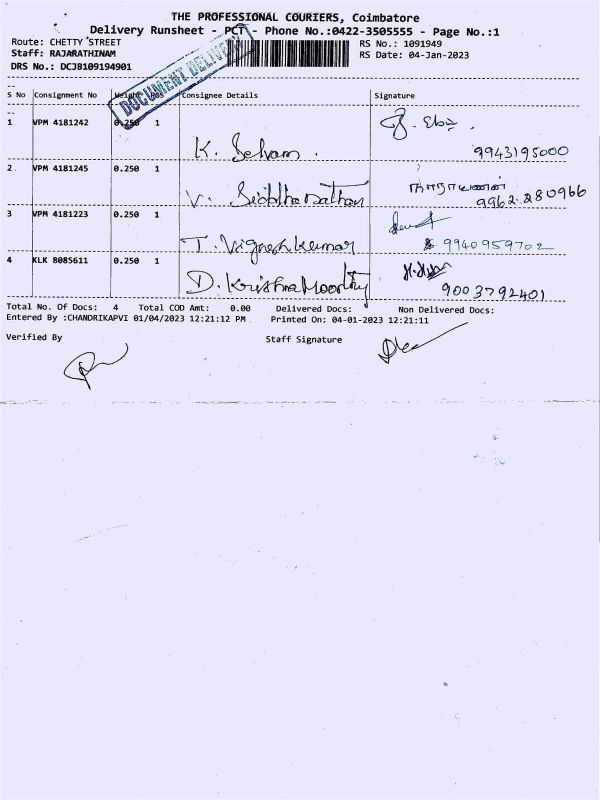 THE PROFESSIONAL COURIERS, Coimbatore
Delivery Runsheet - PCT - Phone No.:0422-3505555 - Page No.:1
Route: CHETTY STREET RS No.: 1091949
Staff: RAJARATHINAM RS Date: 04-Jan-2023
DRS No.: DCJB109194901
DOCUMENT DELIVERY
S No Consignment No Weight Pcs Consignee Details Signature
1 VPM 4181242 0.250 1 K. Selvam. 9943195000
2 VPM 4181245 0.250 1 V. Siddharathan நாராயணன் 9962280966
3 VPM 4181223 0.250 1 T. Vignesh Kumar 9940959702
4 KLK 8085611 0.250 1 D. Krishna Moorthy 9003792401
Total No. Of Docs: 4 Total COD Amt: 0.00 Delivered Docs: Non Delivered Docs:
Entered By :CHANDRIKAPVI 01/04/2023 12:21:12 PM Printed On: 04-01-2023 12:21:11
Verified By Staff Signature